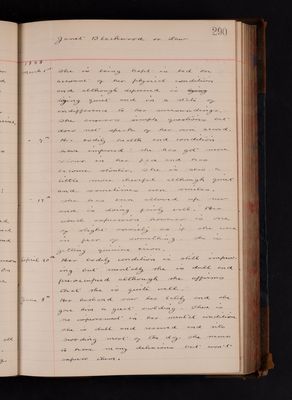 290
Janet Blackwood or Law
1908
March 5th She is being kept in bed on
account of her physical condition
and although depressed is
lying quiet and in a state of
indifference to her surroundings.
She answers simple questions but
does not speak of her own accord.
" 9th Her bodily health and condition
have improved. She has got more
colour in her face and has
become stouter. She is also a
little more cheerful although quiet
and sometimes even smiles.
She has been allowed up now
and is doing fairly well. Her
usual expression however is one
of slight anxiety as if she were
in fear of something. She is
getting quinine
April 20th Her bodily condition is still improv-
ing but mentally she is dull and
preoccupied although she affirms
that she is quite well.
June 8th Her husband saw her lately and she
gave him a great scolding. There is
no improvement in her mental condition
she is dull and reserved and sits
brooding most of the day. She seems
to have many delusions but won't
express them.